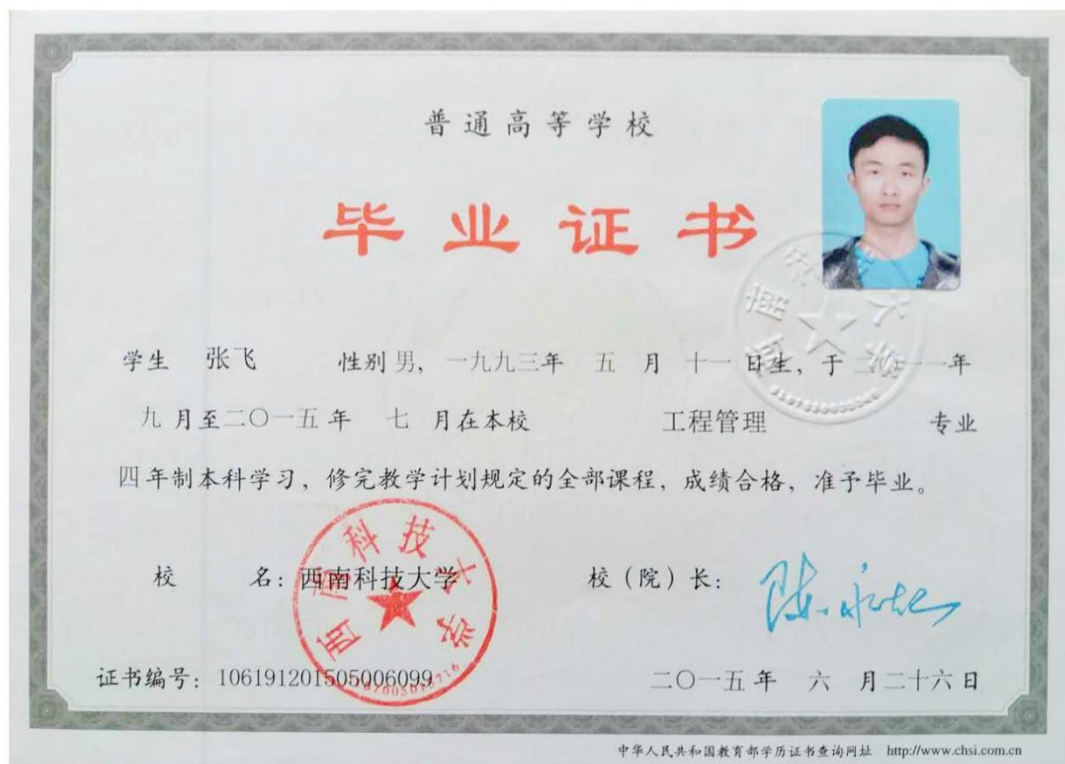 普通高等学校
毕业证书
学生 张飞 性别 男, 一九九三年 五 月 十一 日生, 于 二〇一一年
九 月至二〇一五年 七 月在本校 工程管理 专业
四 年制本科学习, 修完教学计划规定的全部课程, 成绩合格, 准予毕业。
校 名: 西南科技大学
西南科技大学
校(院)长:
证书编号: 106191201505006099
二〇一五年 六 月二十六日
中华人民共和国教育部学历证书查询网址 http://www.chsi.com.cn